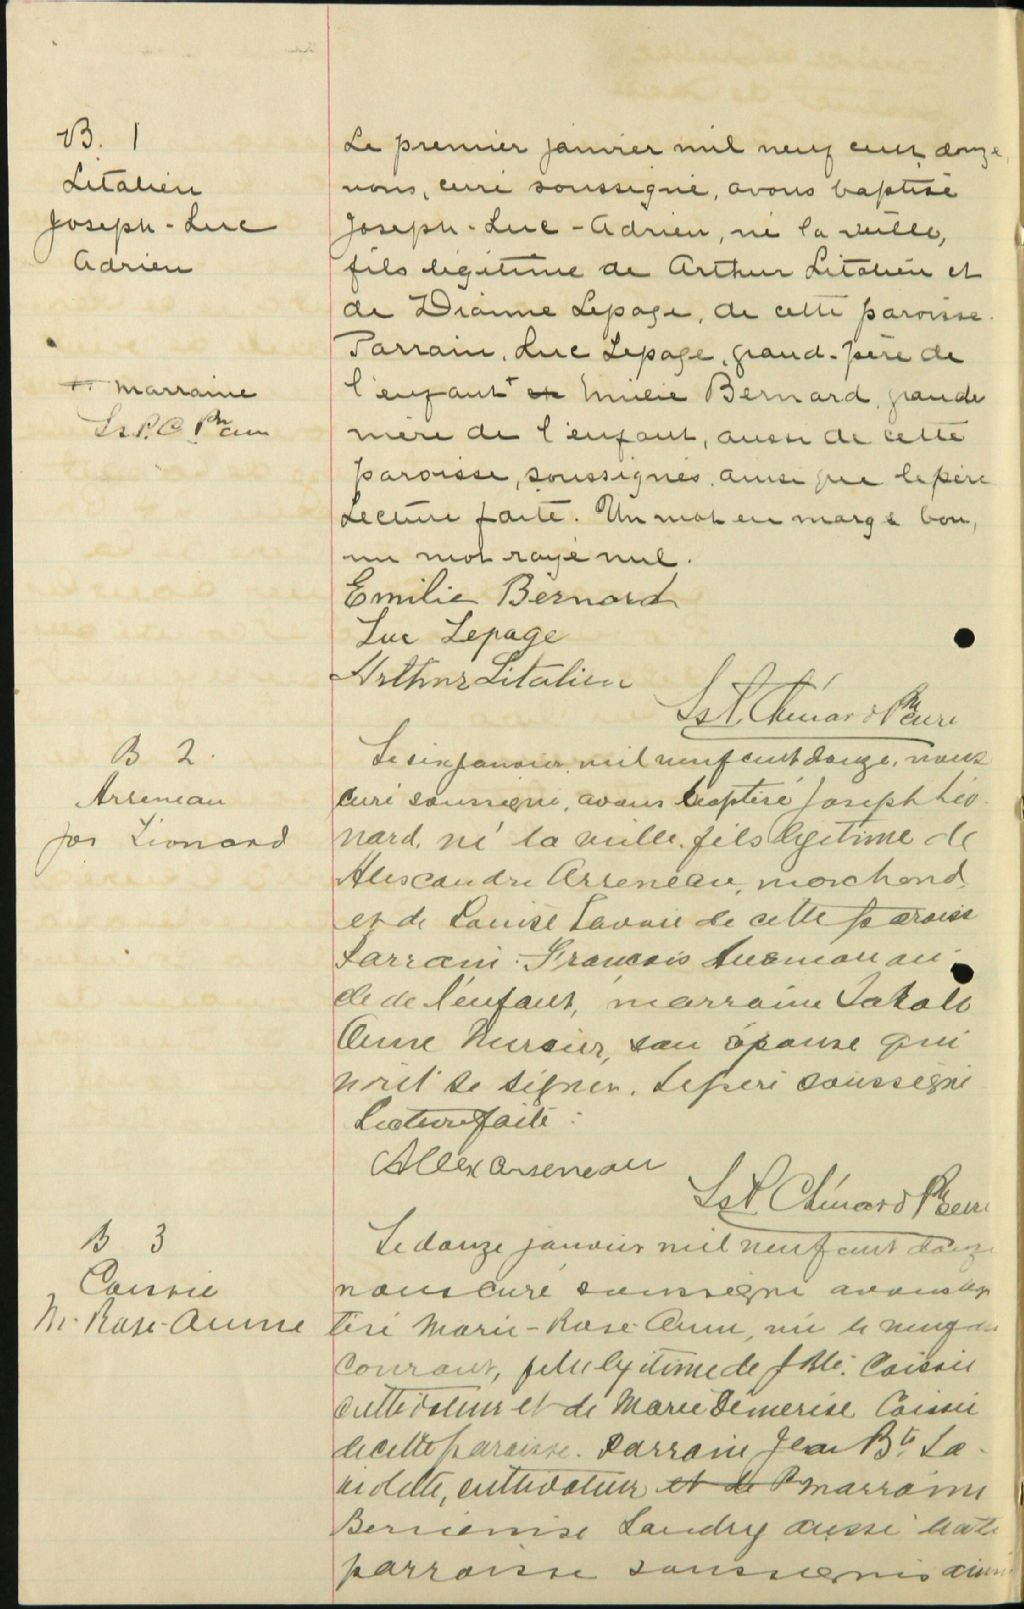 B. 1
Litalien
Joseph-Luc
Adrien
+ marraine
Ls. P. C. Ptre curé
Le premier janvier mil neuf cent douze,
nous, curé soussigné, avons baptisé
Joseph-Luc-Adrien, né la veille,
fils légitime de Arthur Litalien et
de Dianne Lepage, de cette paroisse.
Parrain, Luc Lepage, grand-père de
l'enfant + et Emilie Bernard, grande
mère de l'enfant, aussi de cette
paroisse, soussignés ainsi que le père
Lecture faite. Un mot en marge bon,
un mot rayé nul.
Emilie Bernard
Luc Lepage
Arthur Litalien
Ls P. Chénard Ptre curé
B 2.
Arseneau
Jos Léonard
Le six janvier mil neuf cent douze, nous
curé soussigné, avons baptisé Joseph Léo-
nard, né la veille, fils légitime de
Alexandre Arseneau, marchand,
et de Louise Savoie de cette paroisse
Parrain: François
cle de l'enfant, marraine
Anne Mercier, son épouse qui
n'ont su signer. Le père soussigné
Lecture faite:
Alex Arseneau
Ls P. Chénard Ptre curé
B 3
Caissie
M. Rose-Anne
Le douze janvier mil neuf cent douze
nous curé soussigné avons bap
tisé Marie-Rose-Anne, née le neuf du
courant, fille légitime de J. Bte. Caissie
cultivateur et de Marie Démerise Caissie
de cette paroisse. Parrain Jean Bte La-
violette, cultivateur et de P marraine
Landry aussi de cette
parroisse soussignés ainsi